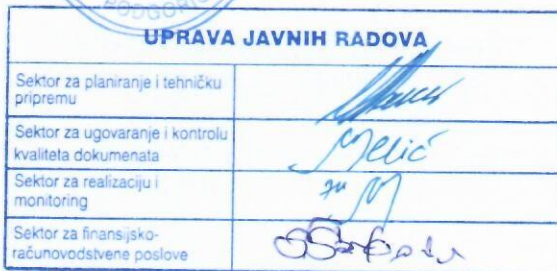 PODGORIC
UPRAVA JAVNIH RADOVA
Sektor za planiranje i tehničku
pripremu
Sektor za ugovaranje i kontrolu
kvaliteta dokumenata
Sektor za realizaciju i
monitoring
Sektor za finansijsko-
računovodstvene poslove